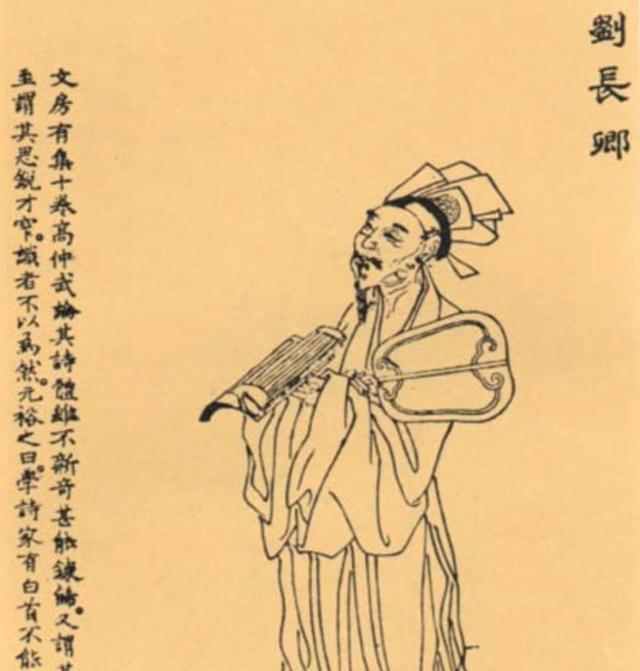 劉長卿
文房有集十卷高仲武論其詩體雖不新奇甚能鍊飾。又謂
至謂其思銳才窄。識者不以為然。元裕之曰。學詩家有白首不能